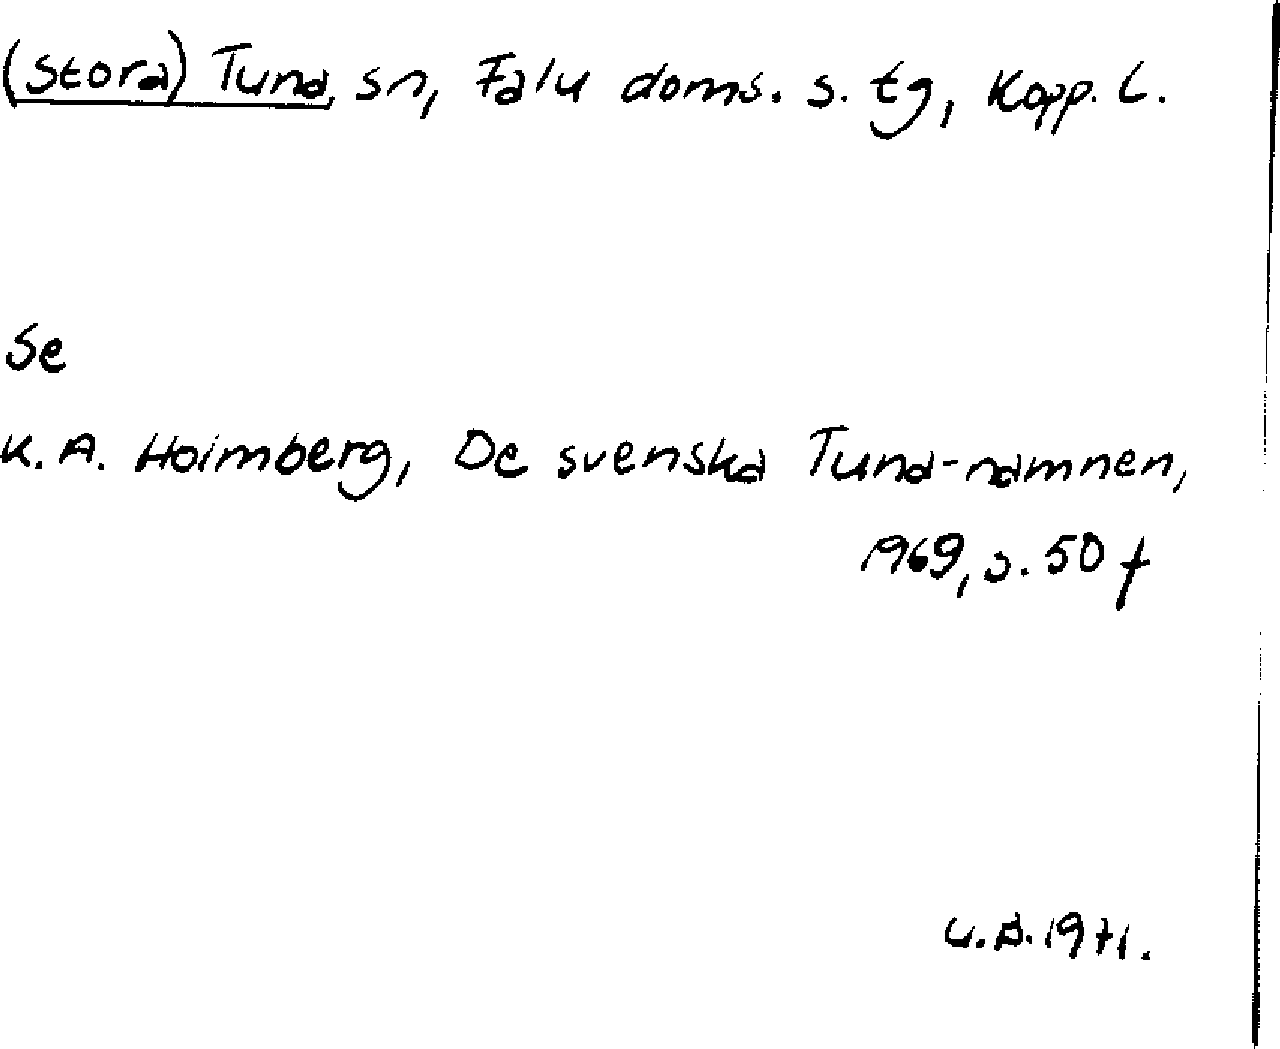 (Stora) Tuna sn, Falu doms. s. tg, Kopp. L.
Se
K. A. Holmberg, De svenska Tuna-namnen,
1969, s. 50 f
1971.